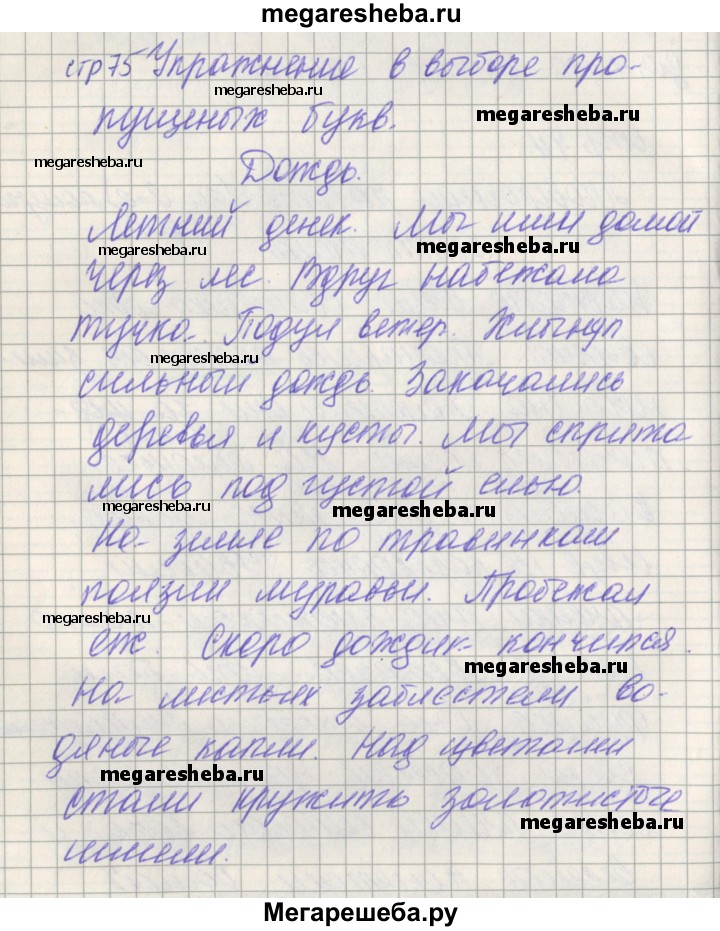 megaresheba.ru
стр 75 Упражнение в выборе про-
megaresheba.ru
пущеных букв.
megaresheba.ru
megaresheba.ru
Дождь.
Летний денек. Мы шли домой
megaresheba.ru
megaresheba.ru
через лес. Вдруг набежала
тучка. Подул ветер. Хлынул
megaresheba.ru
сильный дождь. Закачались
деревья и кусты. Мы спрята
лись под густой елью.
megaresheba.ru
megaresheba.ru
На земле по травинкам
ползли муравьи. Пробежал
megaresheba.ru
еж. Скоро дождик кончился.
megaresheba.ru
На листьях заблестели во-
дяные капли. Над цветами
megaresheba.ru
стали кружить золотистые
megaresheba.ru
шмели.
Мегарешеба.ру